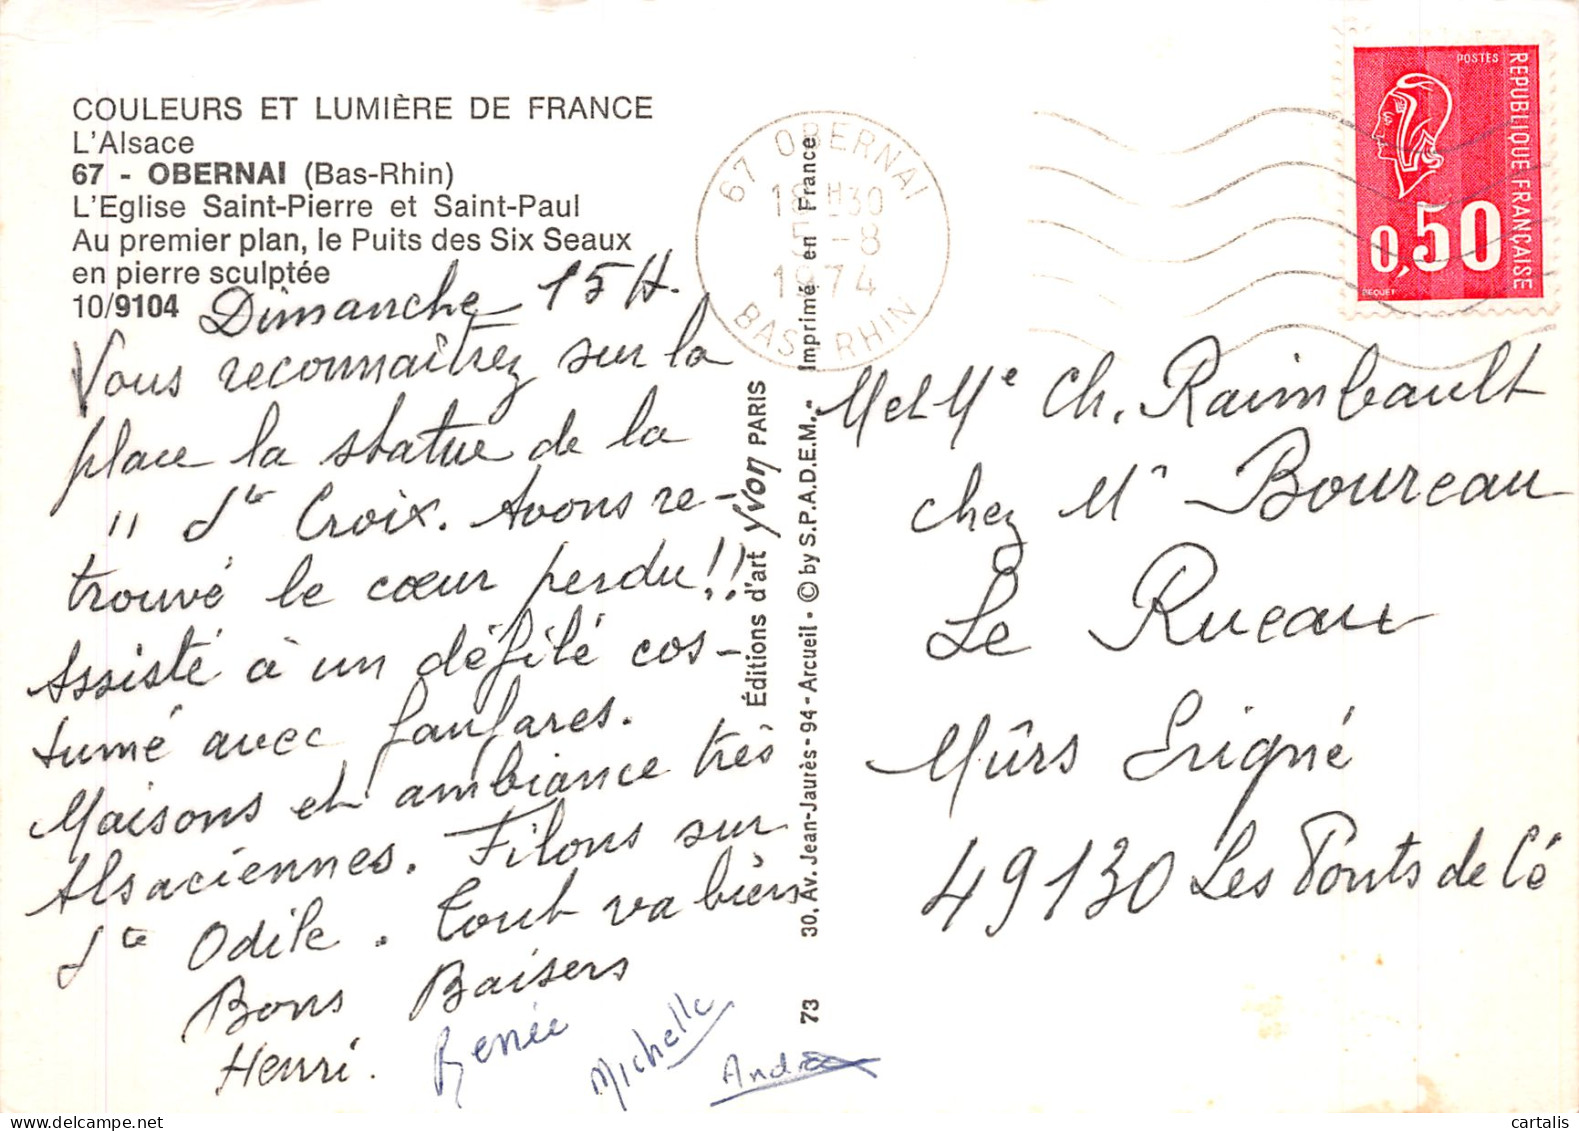 COULEURS ET LUMIÈRE DE FRANCE
L'Alsace
67 - OBERNAI (Bas-Rhin)
L'Eglise Saint-Pierre et Saint-Paul
Au premier plan, le Puits des Six Seaux
en pierre sculptée
10/9104
Dimanche 15 H.
Vous reconnaîtrez sur la
place la statue de la
" Ste Croix. Avons re-
trouvé le cœur perdu!!
Assisté à un défilé cos-
tumé avec fanfares.
Maisons et ambiance très
Alsaciennes. Filons sur
Ste Odile. Tout va bien
Bons Baisers
Henri.
Renée
Michelle
André
67 OBERNAI
BAS RHIN
H30
-8
1974
Éditions d'art Yvon PARIS
73 30. Av. Jean-Jaurès - 94 - Arcueil - © by S.P.A.D.E.M. - Imprimé en France
POSTES
REPUBLIQUE FRANÇAISE
0,50
BEQUET
M et Me Ch. Raimbault
chez Mr Boureau
Le Rueau
Mûrs Erigné
49130 Les Ponts de Cé
cartalis